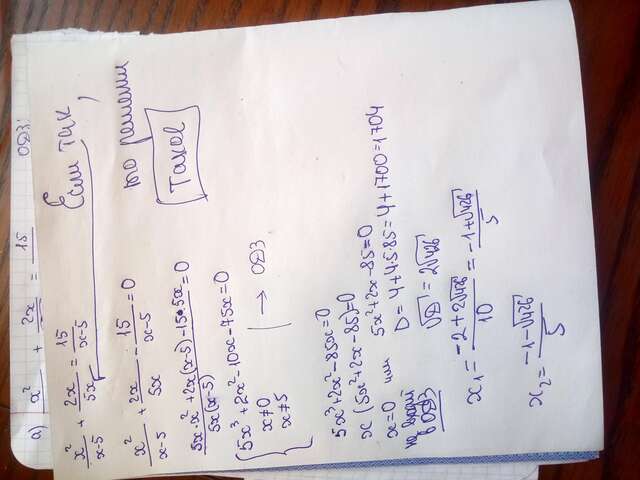 а) x²/ + 2x/ = 15/ ОДЗ:
x²/(x-5) + 2x/5x = 15/(x-5) Если так,
то решении
такое
x²/(x-5) + 2x/5x - 15/(x-5) = 0
(5x·x²+2x(x-5)-15·5x)/(5x(x-5)) = 0
{5x³+2x²-10x-75x=0
x≠0
x≠5 | → ОДЗ
5x³+2x²-85x=0
x(5x²+2x-85)=0
x=0 или 5x²+2x-85=0
не входит
в ОДЗ
D=4+4·5·85=4+1700=1704
√D = 2√426
x₁ = (-2+2√426)/10 = (-1+√426)/5
x₂ = (-1-√426)/5